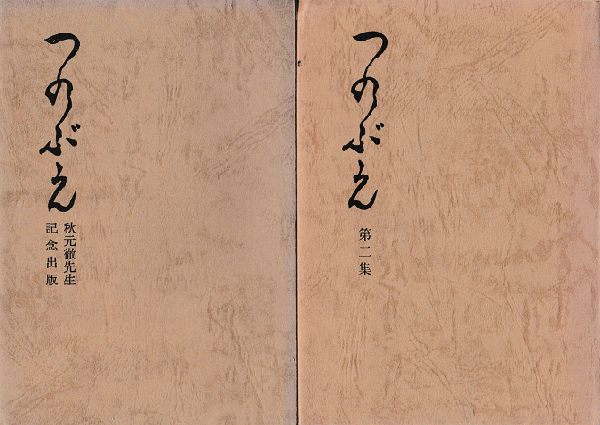 つのぶえ
秋元徹先生
記念出版
つのぶえ
第二集